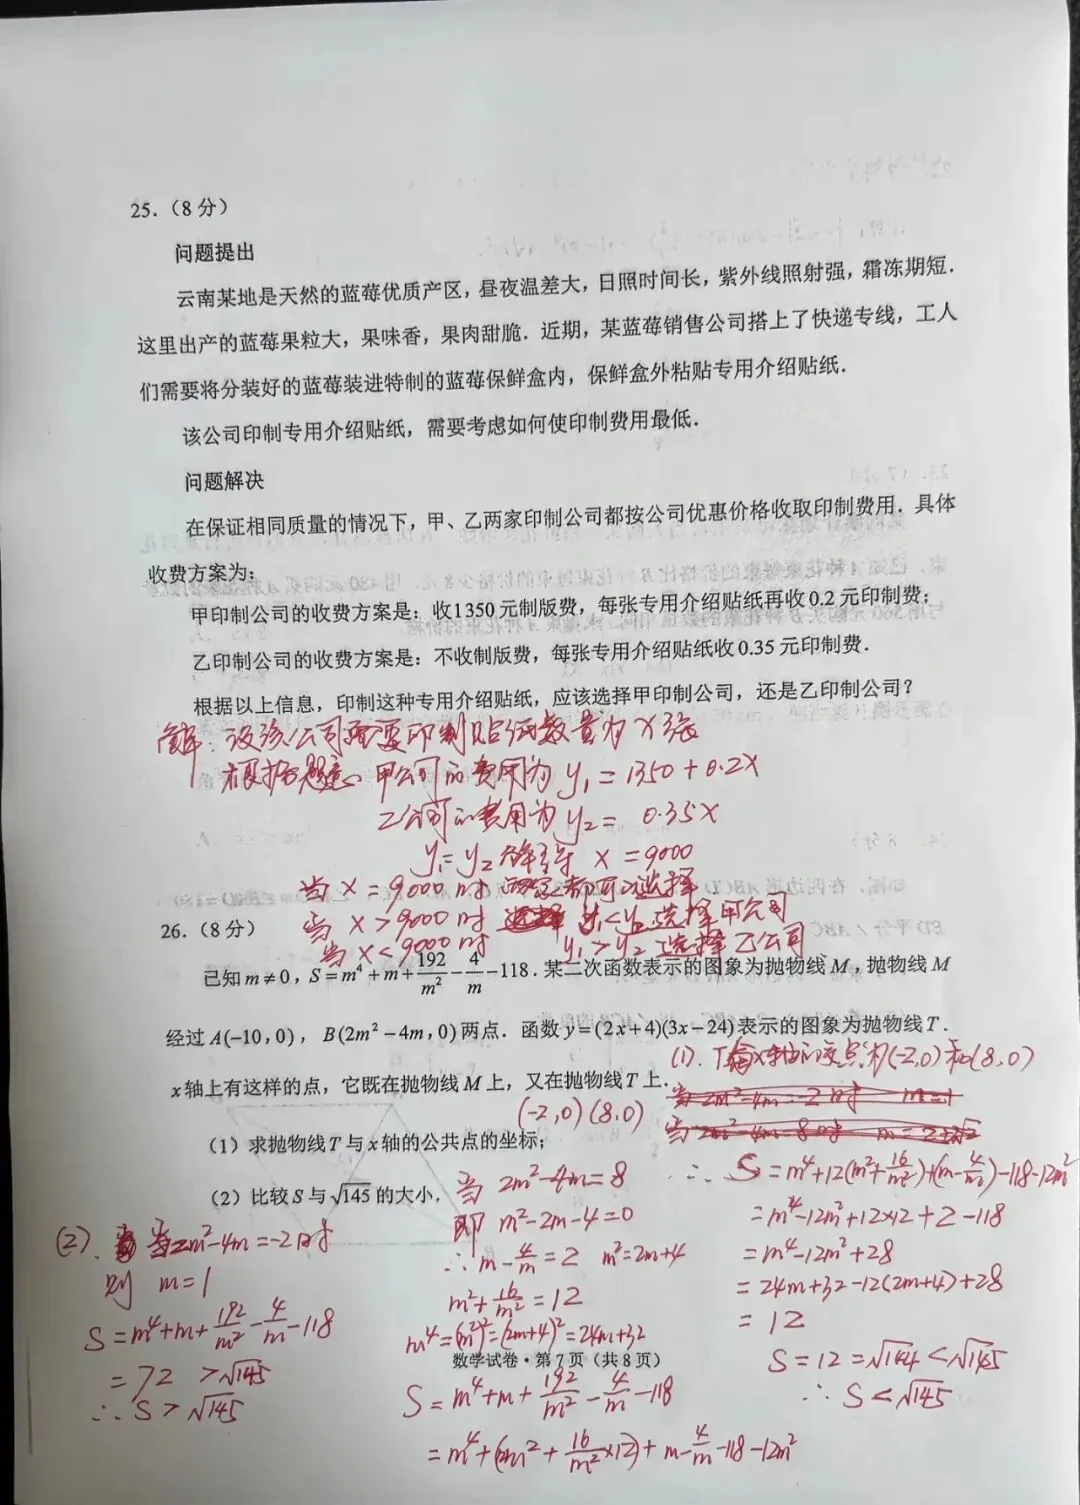 25.（8 分）
问题提出
云南某地是天然的蓝莓优质产区，昼夜温差大，日照时间长，紫外线照射强，霜冻期短．
这里出产的蓝莓果粒大，果味香，果肉甜脆．近期，某蓝莓销售公司搭上了快递专线，工人
们需要将分装好的蓝莓装进特制的蓝莓保鲜盒内，保鲜盒外粘贴专用介绍贴纸．
该公司印制专用介绍贴纸，需要考虑如何使印制费用最低．
问题解决
在保证相同质量的情况下，甲、乙两家印制公司都按公司优惠价格收取印制费用．具体
收费方案为：
甲印制公司的收费方案是：收1350元制版费，每张专用介绍贴纸再收0.2元印制费；
乙印制公司的收费方案是：不收制版费，每张专用介绍贴纸收0.35元印制费．
根据以上信息，印制这种专用介绍贴纸，应该选择甲印制公司，还是乙印制公司？
解：设该公司需要印制贴纸数量为x张
根据题意：甲公司的费用为 y₁=1350+0.2x
乙公司的费用为 y₂= 0.35x
y₁=y₂ 解得 x=9000
当 x=9000时 都可以选择
当 x>9000时 y₁<y₂ 选择甲公司
当 x<9000时 y₁>y₂ 选择乙公司
26.（8 分）
已知 m≠0，S=m⁴+m+192/m²-4/m-118．某二次函数表示的图象为抛物线 M，抛物线 M
经过 A(-10,0)，B(2m²-4m,0)两点．函数 y=(2x+4)(3x-24)表示的图象为抛物线 T．
x 轴上有这样的点，它既在抛物线 M 上，又在抛物线 T 上．
（1）求抛物线 T 与 x 轴的公共点的坐标；
（2）比较 S 与 √145 的大小．
(1). T与x轴的交点为(-2,0)和(8,0)
(-2,0) (8,0)
(2). 当2m²-4m=-2时
则 m=1
S=m⁴+m+192/m²-4/m-118
=72 >√145
∴S>√145
当 2m²-4m=8
即 m²-2m-4=0
∴m-4/m=2 m²=2m+4
m²+16/m²=12
m⁴=(m²)²=(2m+4)²=24m+32
S=m⁴+m+192/m²-4/m-118
=m⁴+(12m²+16/m²×12)+m-4/m-118-12m²
∴S=m⁴+12(m²+16/m²)+(m-4/m)-118-12m²
=m⁴-12m²+12×12+2-118
=m⁴-12m²+28
=24m+32-12(2m+4)+28
=12
S=12=√144<√145
∴S<√145
数学试卷·第7页（共8页）